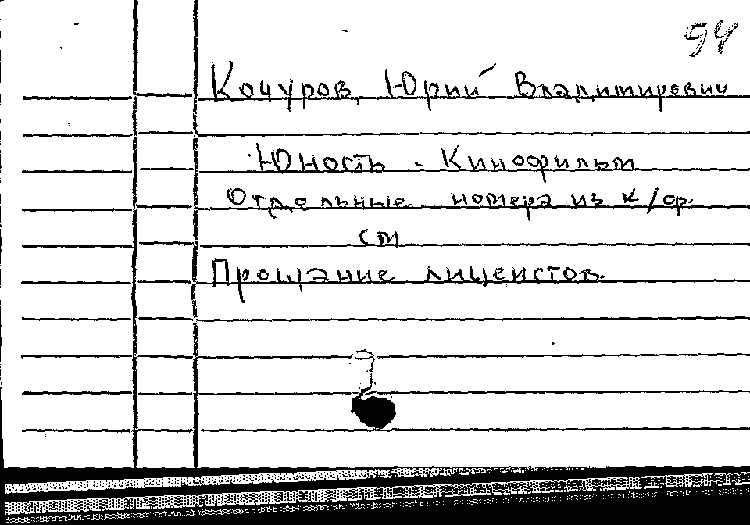 94
Кочуров, Юрий Владимирович
Юность - Кинофильм
Отдельные номера из к/ф.
см
Прощание лицеистов.